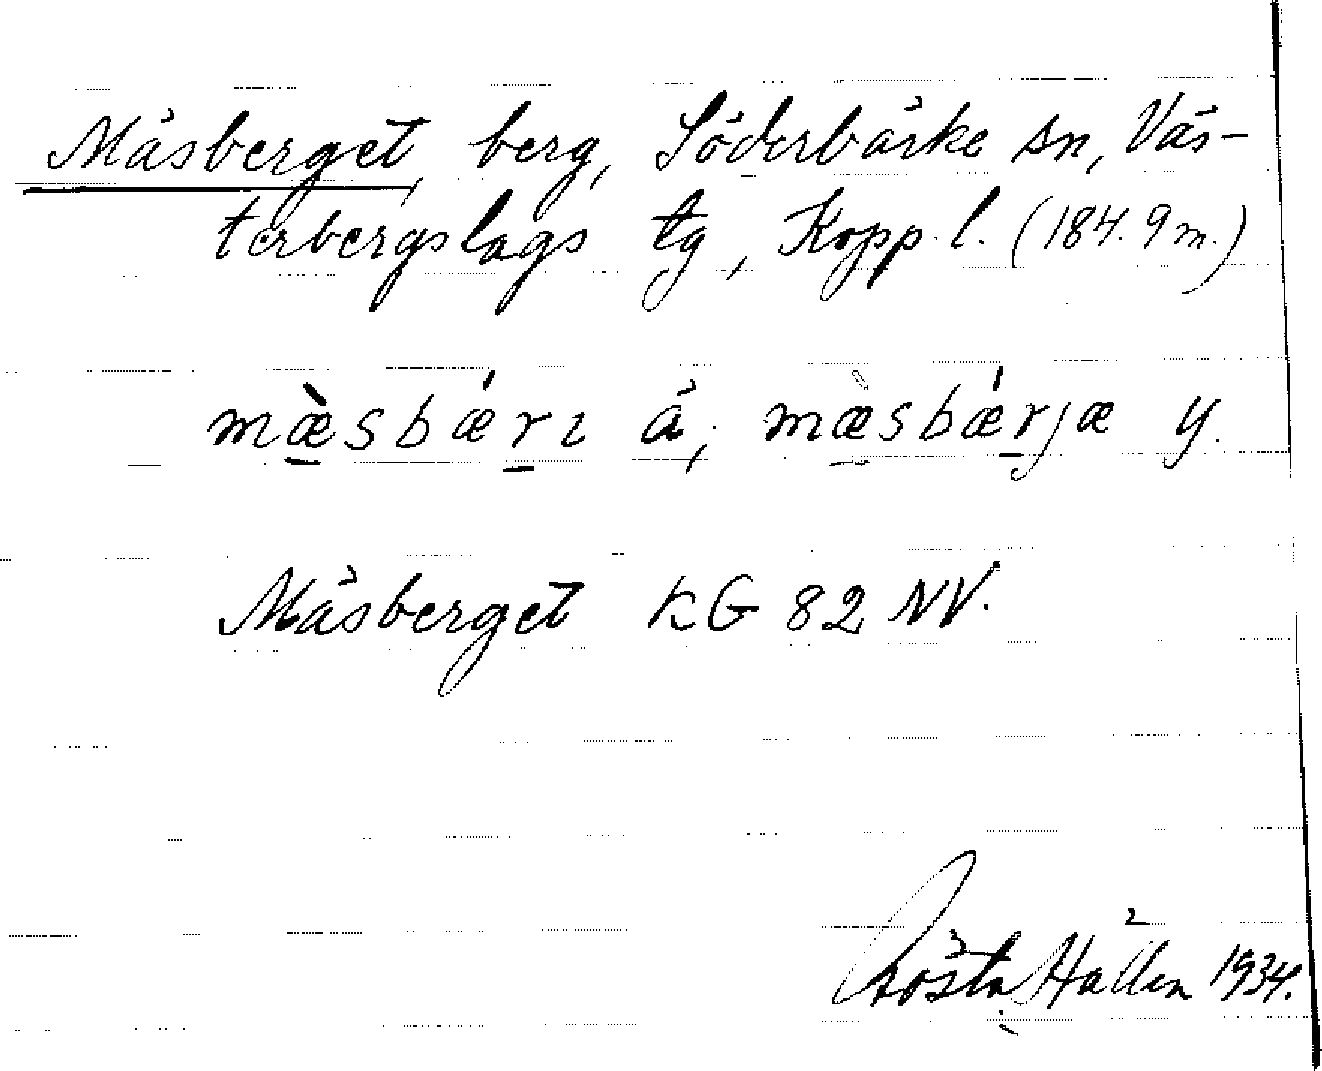 Mäsberget, berg, Söderbärke sn, Väs-
terbergslags tg, Kopp. l. (184.9 m.)
mæ̀sbǽrɩ ä, mæ̀sbǽrjæ y.
Mäsberget KG 82 NV.
Gösta Hållen 1934.